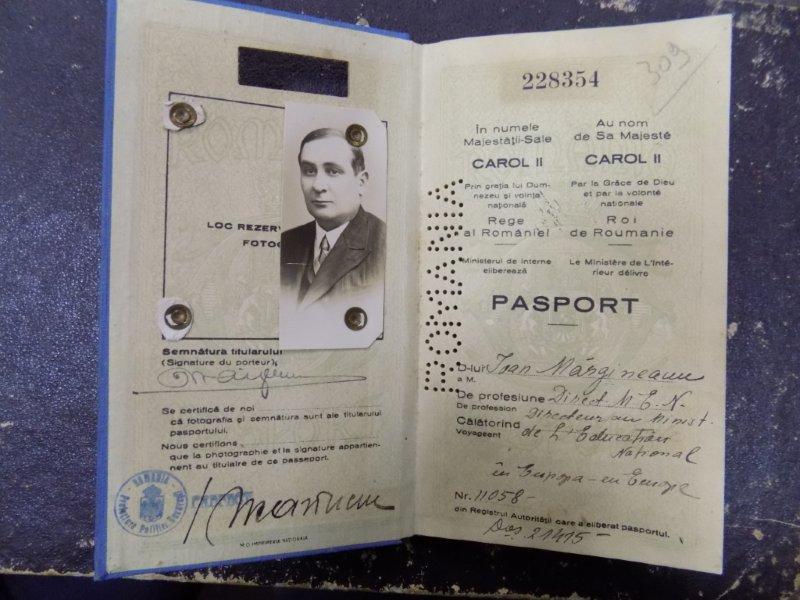 LOC REZER
FOTOG
Semnătura titularului
(Signature du porteur)
Se certifică de noi
că fotografia și semnătura sunt ale titularului
pasportului.
Nous certifions
que la photographie et la signature appartien-
nent au titulaire de ce passeport.
ROMANIA
M.O. IMPRIMERIA NAȚIONALĂ
309
228354
În numele
Majestății-Sale
CAROL II
Prin grația lui Dum-
nezeu și voința
națională
Rege
al României
Ministerul de interne
eliberează
Au nom
de Sa Majesté
CAROL II
Par la Grâce de Dieu
et par la volonté
nationale
Roi
de Roumanie
Le Ministère de L'Inté-
rieur délivre
ROMANIA
PASPORT
D-lui Ioan Mărgineanu
a M.
De profesiune Direct. M. E. N.
De profession Directeur au Minist.
Călătorind de L'Education
Voyageant National
în Europa - en Europe
Nr. 11058
din Registrul Autorității care a eliberat pasportul.
Dos. 21415